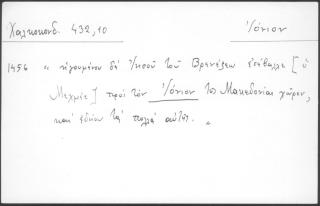 Χαλκοκονδ. 432,10
Ἰόνιον
1456 « ἡγουμένου δὲ Ἰησοῦ τοῦ Βρενέζεω ἐσέβαλλε [ὁ
Μεχμὲτ] πρὸς τὸν Ἰόνιον τῆς Μακεδονίας χώραν,
καὶ ἐδῄου τὰ πολλὰ αὐτῆς. »